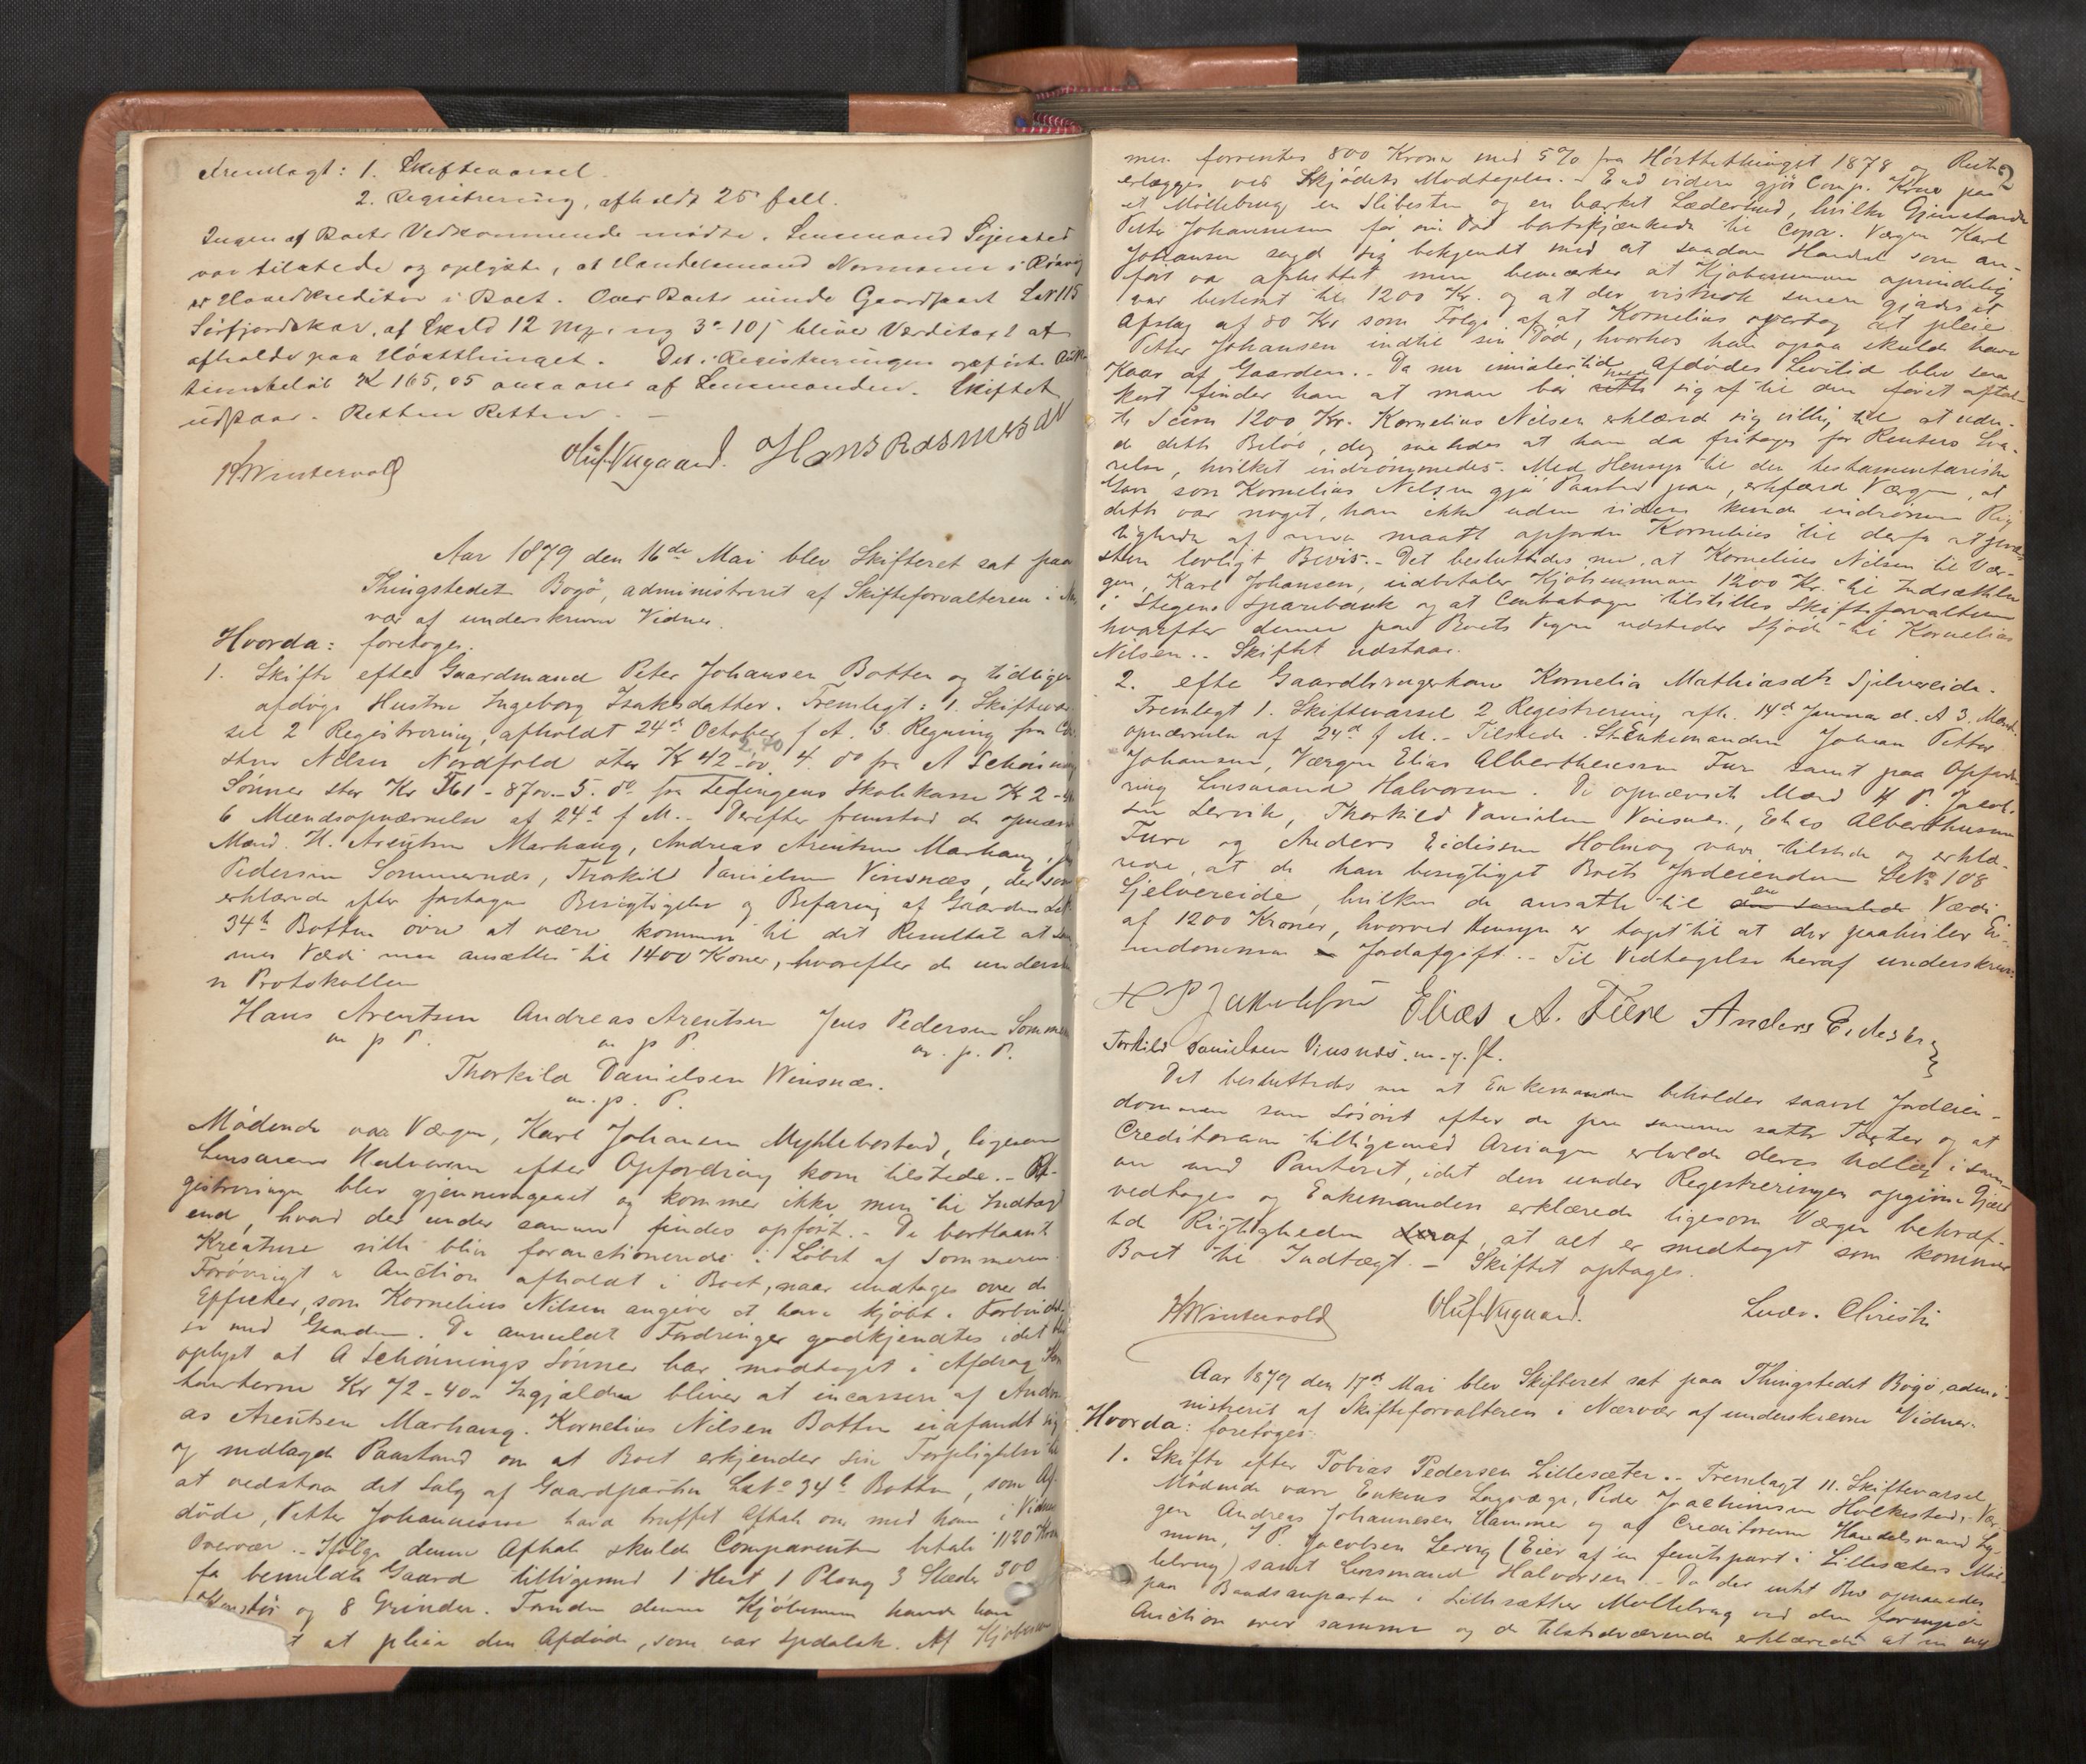 Fremlagt: 1. Skiftevarsel.
2. Registrering, afholdt 25 f.
Ingen af Boets Vedkommende mødte. Lensmand
var tilstede og oplyste, at Handelsmand Normann i
er Hovedkreditor i Boet. Over Boets Gaardpart LNr 115
Sørfjordskar, af Skyld 12 bliver Værditaxt at
afholde paa Høstthinget. Det i Registreringen opførte
Kr 165,05 af Lensmanden. Skiftet
udstaar. Retten
HWintervold Oluf Nygaard. Hans Rasmussen
Aar 1879 den 16de Mai blev Skifteret sat paa
Thingstedet Bogø, administreret af Skifteforvalteren i
vær af underskrevne Vidner.
Hvorda: foretoges.
1. Skifte efter Gaardmand Peter Johansen Botten og tidligere
afdøge Hustru Ingeborg Isaksdatter. Fremlagt: 1. Skiftevar-
sel 2 Registrering, afholdt 24de October f A. 3. Regning fra
Nilsen Nordfold stor Kr 42 4. do fra A Schønning
Sønner stor Kr 5. do fra Ledingens Skolekasse Kr 2
6 Mændsopnævnelse af 24de f M. - Derefter fremstod de opnævnte
Mænd H. Arentsen Marhaug, Andreas Arentsen Marhaug,
Pedersen Sommernæs, Thorkild Danielsen Vinsnæs, der som
erklærede efter foretagen Besigtigelse og Befaring af Gaarden
34 Botten øvre at være kommen til det Resultat at
mes Værdi maa ansættes til 1400 Kroner, hvorefter de underskre
Protokollen
Hans Arentsen Andreas Arentsen Jens Pedersen
m p P. m p P. m. p. P.
Thorkild Danielsen Winsnæs.
m. p. P.
Mødende var Værgen, Karl Johansen Myklebostad, ligesom
Lensmand Halvorsen efter Opfordring kom tilstede. - Re-
gistreringen blev gjennemgaaet og kommer ikke mere til Indtægt
end, hvad der under samme findes opført. - De bortsaant
Kreature ville blive forauctionerede i Løbet af Sommeren.
Forøvrigt er Auction afholdt i Boet, naar undtages over de
Effecter, som Kornelius Nilsen angiver at have kjøbt i Forbindel-
se med Gaarden. De anmeldte Fordringer godkjendtes idet
oplyst at A Schønnings Sønner har modtaget i Afdrag
Kr 72-40. Ingjælden bliver at incassere af Andre-
as Arentsen Marhaug. Kornelius Nilsen Botten indfandt sig
og nedlagde Paastand om at Boet erkjender sin Forpligtelse til
at vedstaa det Salg af Gaardparten LNo 34 Botten, som Af-
døde, Petter Johannesen have truffet Aftale om med ham i
Overvær. - Ifølge denne Aftale skulde Comparenten betale 1120 Kro
for bemeldte Gaard tilligemed 1 Hest 1 Ploug 3 Slæder 300
og 8 Grinder. Foruden denne Kjøbesum havde han
at pleie den Afdøde, som var spedalsk. Af
2
men forrentes 800 Kroner med 5% fra Høstthinget 1878 og Rente
erlægges ved Skjødets Modtagelse. - End videre gjør Comp. Krav paa
et Møllebrug en Slibesten og en barket Læderhud, hvilke Gjenstande
Petter Johannesen før sin Død bortskjænkede til Copa. Værgen Karl
Johansen sagde sig bekjendt med at saadan Handel som an-
ført var afsluttet men bemærker at Kjøbesummen oprindelig
var bestemt til 1200 Kr. og at der vistnok senere gjordes et
Afslag af 80 Kr som Følge af at Kornelius overtog at pleie
Petter Johansen indtil sin Død, hvorhos han ogsaa skulde have
Kaar af Gaarden. - Da nu imidlertid Afdødes Levetid blev saa
kort finder han at man bør sig af til den først aftal-
te Sum 1200 Kr. Kornelius Nilsen erklærede sig villig til at
dette Beløb, dog saaledes at han da fritages for Renters Sva-
relse, hvilket indrømmedes. Med Hensyn til den testamentariske
Gave som Kornelius Nilsen gjør Paastand paa, erklærede Værgen, at
dette var noget, han ikke uden videre kunde indrømme Rig-
tigheden af men maatte opfordre Kornelius til derfor at
lovligt Bevis. - Det besluttedes nu, at Kornelius Nilsen til Vær-
gen, Karl Johansen, indbetaler Kjøbesummen 1200 Kr. til Indsættelse
i Stegens Sparebank og at Contrabogen tilstilles Skifteforvalteren
hvorefter denne paa Boets Vegne udsteder Skjøde til Kornelius
Nilsen. - Skiftet udstaar.
2. efter Gaardbrugerkone Kornelia Mathiasdtr Sjelvereide.
Fremlagt 1. Skiftevarsel 2 Registrering afh. 14de Januar d. A 3. Mænds-
opnævnelse af 24de f M. - Tilstede Enkemanden Johan Petter
Johansen, Værgen Elias Alberthsen Fure samt paa Opford-
ring Lensmand Halvorsen. De opnævnte Mænd H P. Jacob-
sen Lervik, Thorkild Danielsen Vinsnæs, Elias Alberthsen
Fure og Anders Eidissen Holmog vare tilstede og erklæ-
rede, at de have besigtiget Boets Jordeiendom LNo 108
Sjelvereide, hvilken de ansatte til en Værdi
af 1200 Kroner, hvorved Hensyn er taget til at der paahviler Ei-
endommen Jordafgift. - Til Vedtagelse heraf underskreves
H P Jakobsen Elias A. Fure Anders Eidesen
Torkild Danielsen Vinsnæs. m. p. P.
Det besluttedes nu at Enkemanden beholder saavel Jordeien-
dommen som Løsøret efter de paa samme satte Taxter og at
Creditorerne tilligemed Arvingen erholde deres Udlæg i sam-
me med Panteret, idet den under Registreringen opgivne Gjæld
vedtages og Enkemanden erklærede ligesom Værgen bekræf-
tede Rigtigheden deraf, at alt er medtaget som kommer
Boet til Indtægt. - Skiftet optages.
HWintervold Oluf Nygaard. Ludv. Christi
Aar 1879 den 17de Mai blev Skifteret sat paa Thingstedet Bogø, admi-
nistreret af Skifteforvalteren i Nærvær af underskrevne Vidner.
Hvorda: foretoges.
1. Skifte efter Tobias Pedersen Lillesæter. - Fremlagt 11. Skiftevarsel.
Mødende vare Enkens Lagværge, Peder Joachimsen Holkestad, Vær-
gen Andreas Johannesen Hammer og af Creditorerne Handelsmand
J P. Jacobsen Lervig (Eier af en femtepart i Lillesæters Møl-
lebrug) samt Lensmand Halvorsen. - Da der intet Bud opnaaedes
paa Boets anparten i Lillesæther Møllebrug ved den foregaaede
Auction over samme og de tilstedeværende erklærede at en ny